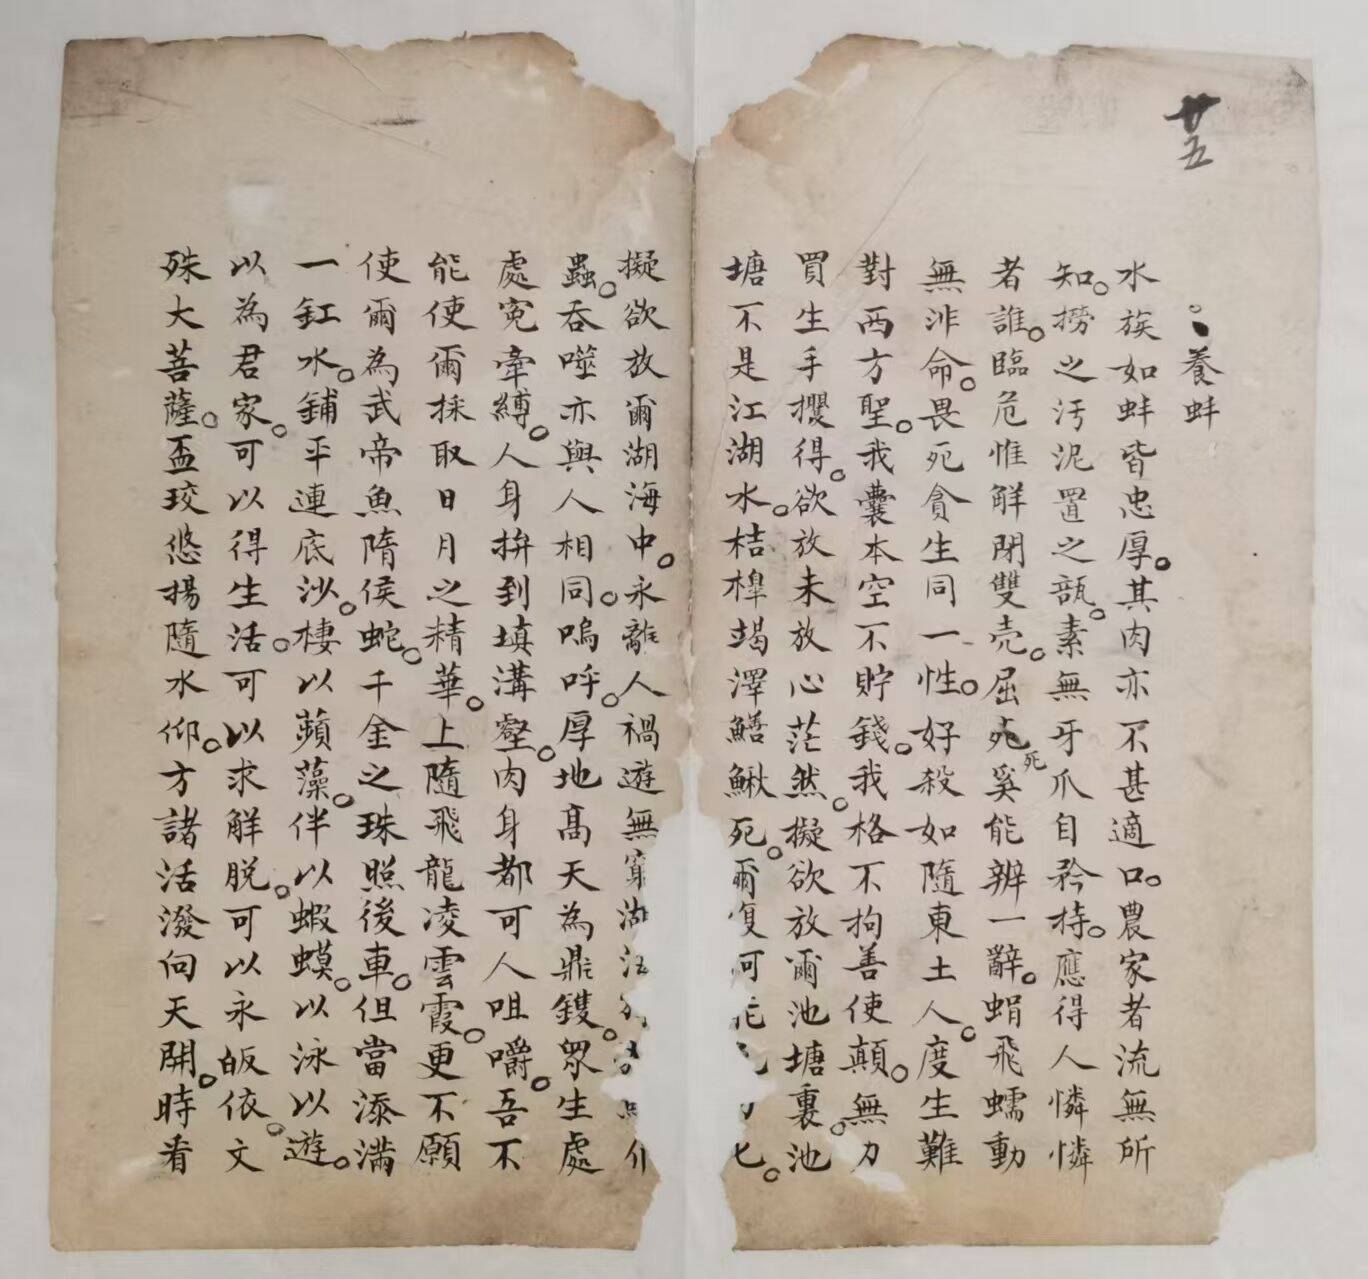 廿五
養蚌
水族如蚌皆忠厚。其肉亦不甚適口。農家者流無所
知。撈之污泥置之瓿。素無牙爪自矜持。應得人憐憐
者誰。臨危惟解閉雙壳。屈死奚能辨一辭。蜎飛蠕動
無非命。畏死貪生同一性。好殺如隨東土人。度生難
對西方聖。我囊本空不貯錢。我格不拘善使顛。無力
買生手攫得。欲放未放心茫然。擬欲放爾池塘裏。池
塘不是江湖水。桔槔竭澤鱔鰍死。爾復何能
擬欲放爾湖海中。永離人禍遊無窮湖
蟲。吞噬亦與人相同。嗚呼。厚地高天為鼎鑊。眾生處
處冤牽縛。人身拚到填溝壑。肉身都可人咀嚼。吾不
能使爾採取日月之精華。上隨飛龍凌雲霞。更不願
使爾為武帝魚隋侯蛇。千金之珠照後車。但當添滿
一缸水。鋪平連底沙。棲以蘋藻。伴以蝦蟆。以泳以遊。
以為君家。可以得生活。可以求解脫。可以永皈依。文
殊大菩薩。盃珓悠揚隨水仰。方諸活潑向天開。時看